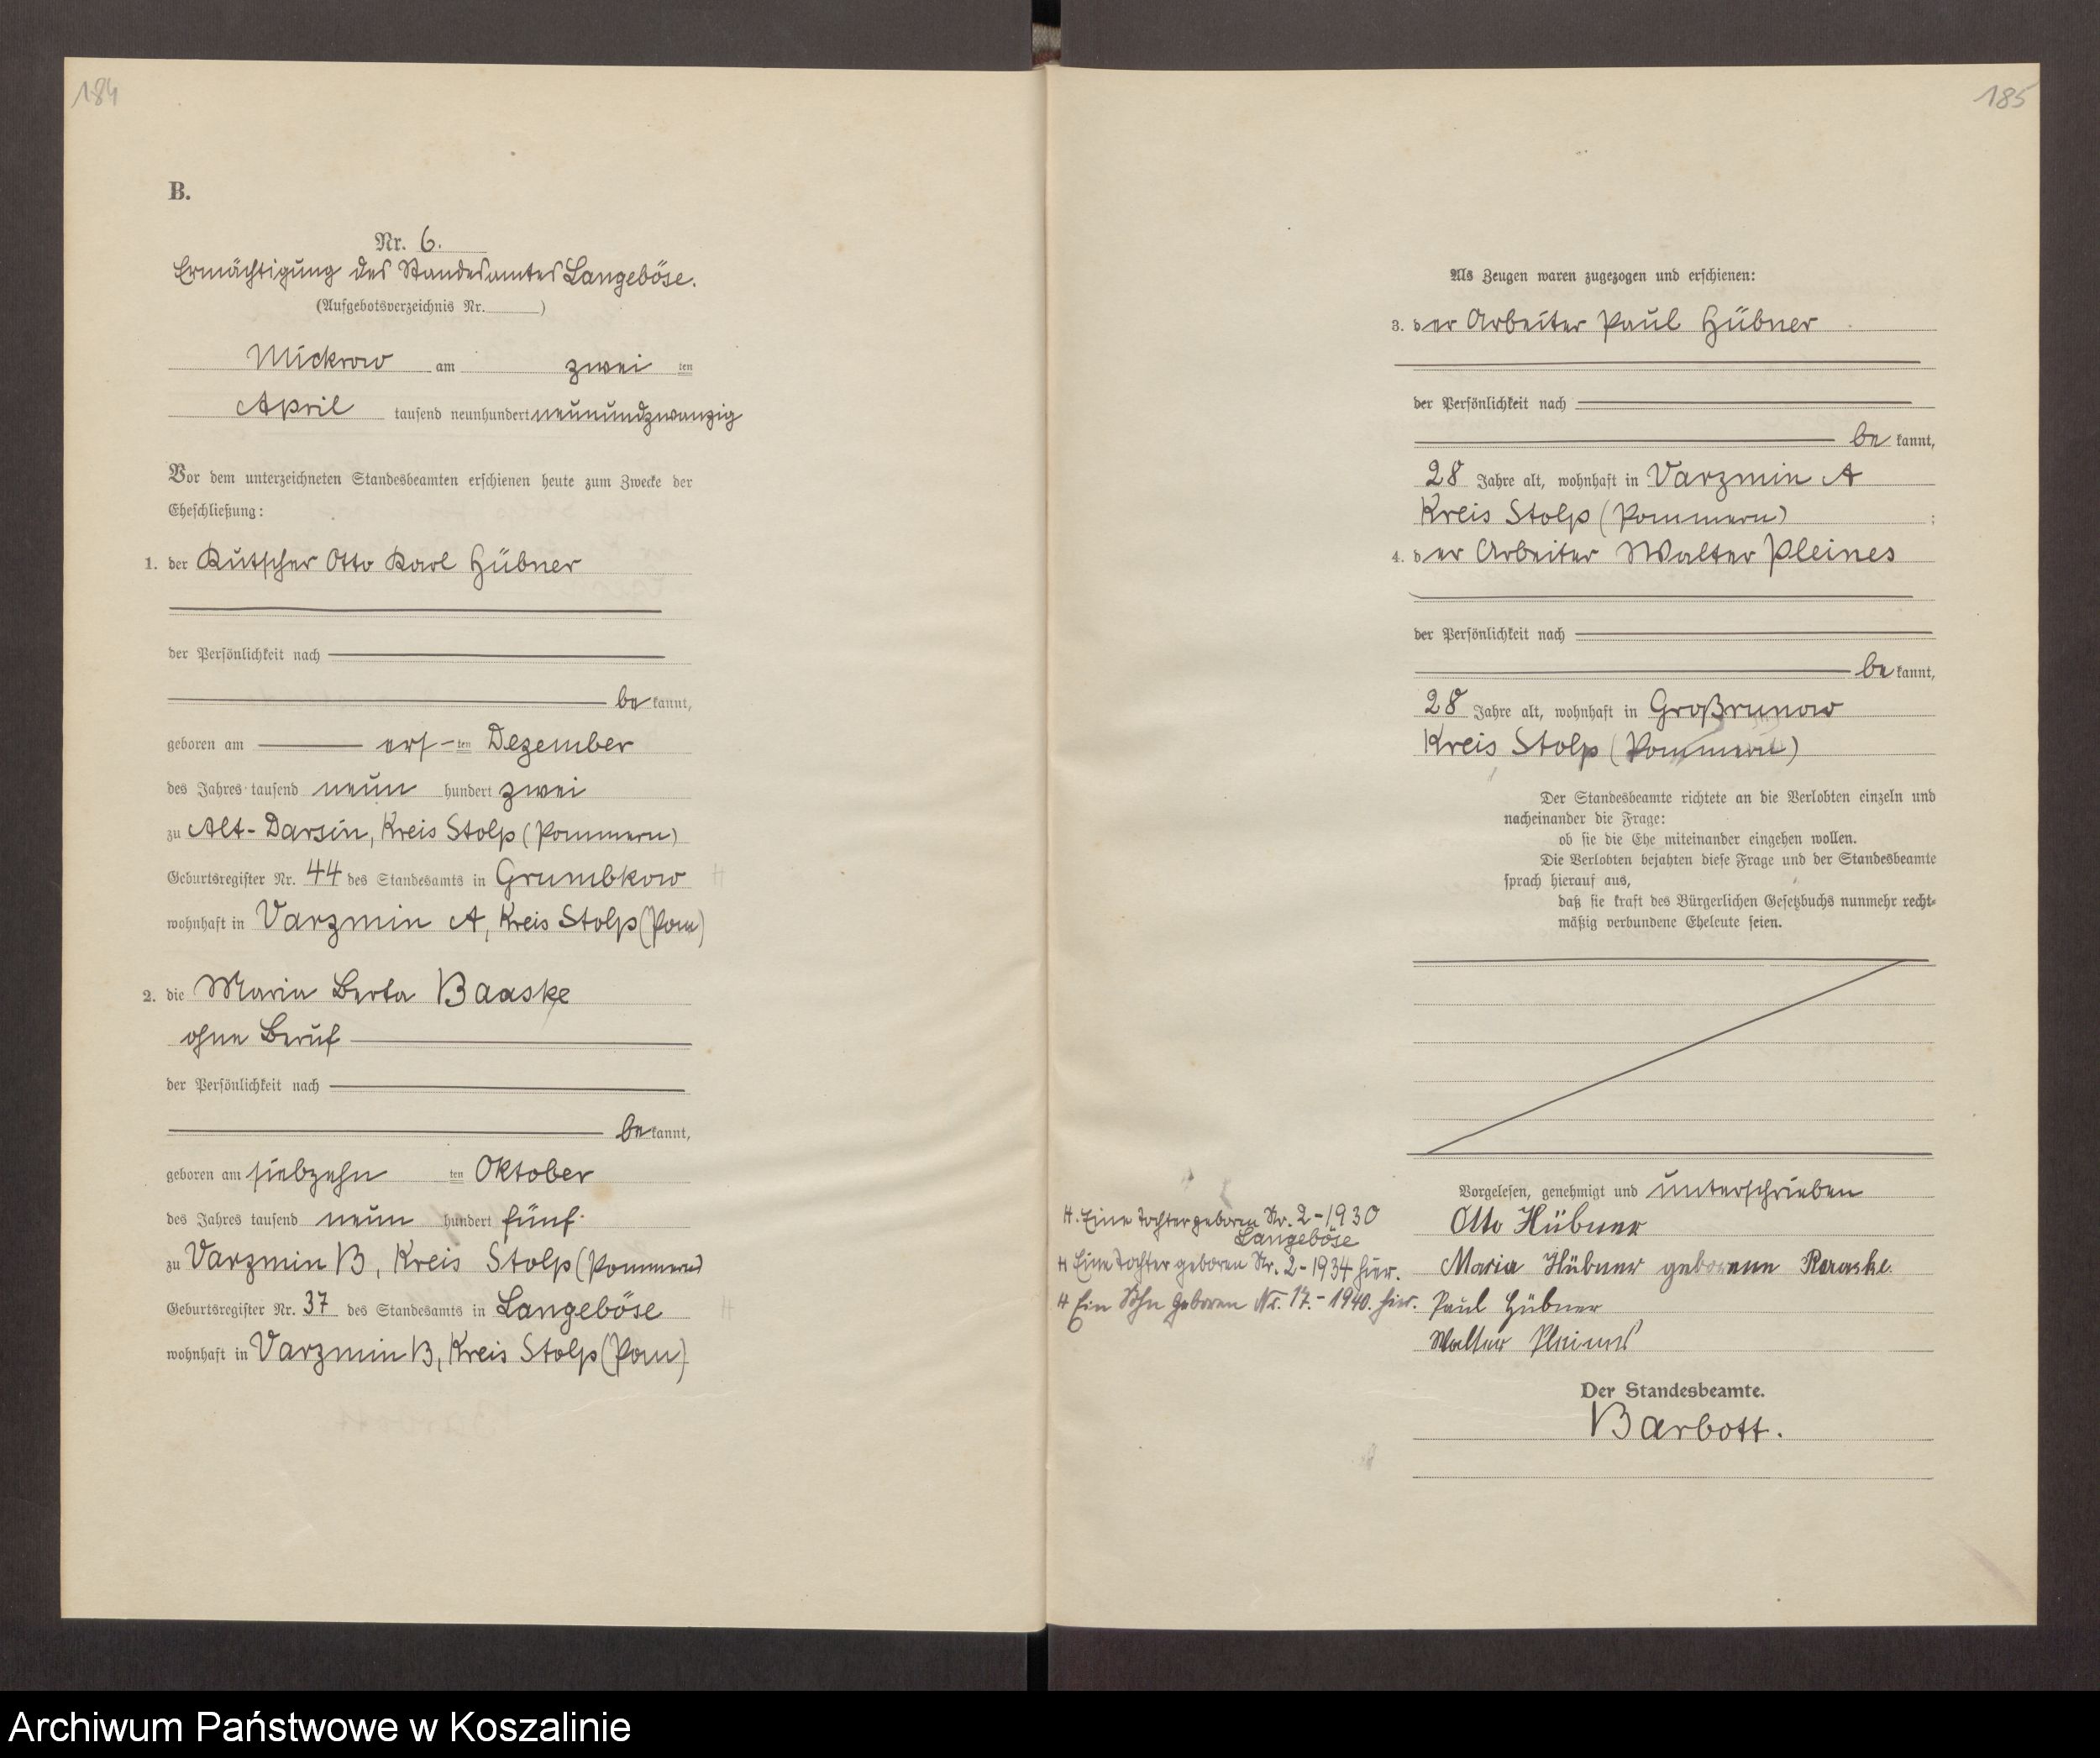 184
B.
Nr. 6.
Ermächtigung des Standesamtes Langeböse.
(Aufgebotsverzeichnis Nr. )
Mickrow am zwei ten
April tausend neunhundert neunundzwanzig
Vor dem unterzeichneten Standesbeamten erschienen heute zum Zwecke der
Eheschließung:
1. der Kutscher Otto Karl Hübner
der Persönlichkeit nach
be kannt,
geboren am ers-ten Dezember
des Jahres tausend neun hundert zwei
zu Alt-Darsin, Kreis Stolp (Pommern)
Geburtsregister Nr. 44 des Standesamts in Grumbkow
wohnhaft in Varzmin A, Kreis Stolp (Pom)
2. die Maria Berta Baaske
ohne Beruf
der Persönlichkeit nach
be kannt,
geboren am siebzehn ten Oktober
des Jahres tausend neun hundert fünf
zu Varzmin B, Kreis Stolp (Pommern)
Geburtsregister Nr. 37 des Standesamts in Langeböse
wohnhaft in Varzmin B, Kreis Stolp (Pom)
185
Als Zeugen waren zugezogen und erschienen:
3. der Arbeiter Paul Hübner
der Persönlichkeit nach
be kannt,
28 Jahre alt, wohnhaft in Varzmin A
Kreis Stolp (Pommern) ;
4. der Arbeiter Walter Pleines
der Persönlichkeit nach
be kannt,
28 Jahre alt, wohnhaft in Großrunow
Kreis Stolp (Pommern)
Der Standesbeamte richtete an die Verlobten einzeln und
nacheinander die Frage:
ob sie die Ehe miteinander eingehen wollen.
Die Verlobten bejahten diese Frage und der Standesbeamte
sprach hierauf aus,
daß sie kraft des Bürgerlichen Gesetzbuchs nunmehr recht-
mäßig verbundene Eheleute seien.
Vorgelesen, genehmigt und unterschrieben
Otto Hübner
Maria Hübner geborenne Baaske.
Paul Hübner
Walter Pleines
Der Standesbeamte.
Barbott.
H. Eine Tochter geboren Nr. 2-1930
Langeböse
H Eine Tochter geboren Nr. 2-1934 hier.
H Ein Sohn geboren Nr. 17.-1940. hier.
Archiwum Państwowe w Koszalinie